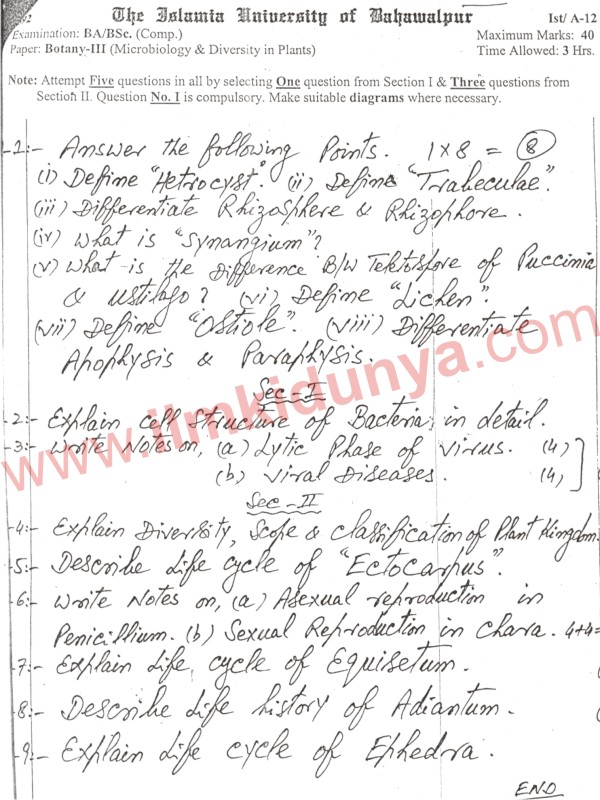 The Islamia University of Bahawalpur
Ist/ A-12
Examination: BA/BSc. (Comp.)
Maximum Marks: 40
Paper: Botany-III (Microbiology & Diversity in Plants)
Time Allowed: 3 Hrs.
Note: Attempt Five questions in all by selecting One question from Section I & Three questions from
Section II. Question No. I is compulsory. Make suitable diagrams where necessary.
-1:- Answer the following Points. 1×8 = 8
(i) Define "Hetrocyst". (ii) Define "Trabeculae".
(iii) Differentiate Rhizosphere & Rhizophore.
(iv) What is "Synangium"?
(v) What is the Difference B/W Teletospore of Puccinia
& Ustilago? (vi) Define "Lichen".
(vii) Define "Ostiole". (viii) Differentiate
Apophysis & Paraphysis.
Sec-I
-2:- Explain cell structure of Bacteria in detail.
-3:- Write Notes on, (a) Lytic Phase of virus. (4)
(b) Viral Diseases. (4)
Sec-II
-4:- Explain Diversity, Scope & classification of Plant Kingdom.
-5:- Describe Life cycle of "Ectocarpus".
-6:- Write Notes on, (a) Asexual reproduction in
Penicillium. (b) Sexual Reproduction in Chara. 4+4=
-7:- Explain Life cycle of Equisetum.
-8:- Describe Life history of Adiantum.
-9:- Explain Life cycle of Ephedra.
END
www.ilmkidunya.com